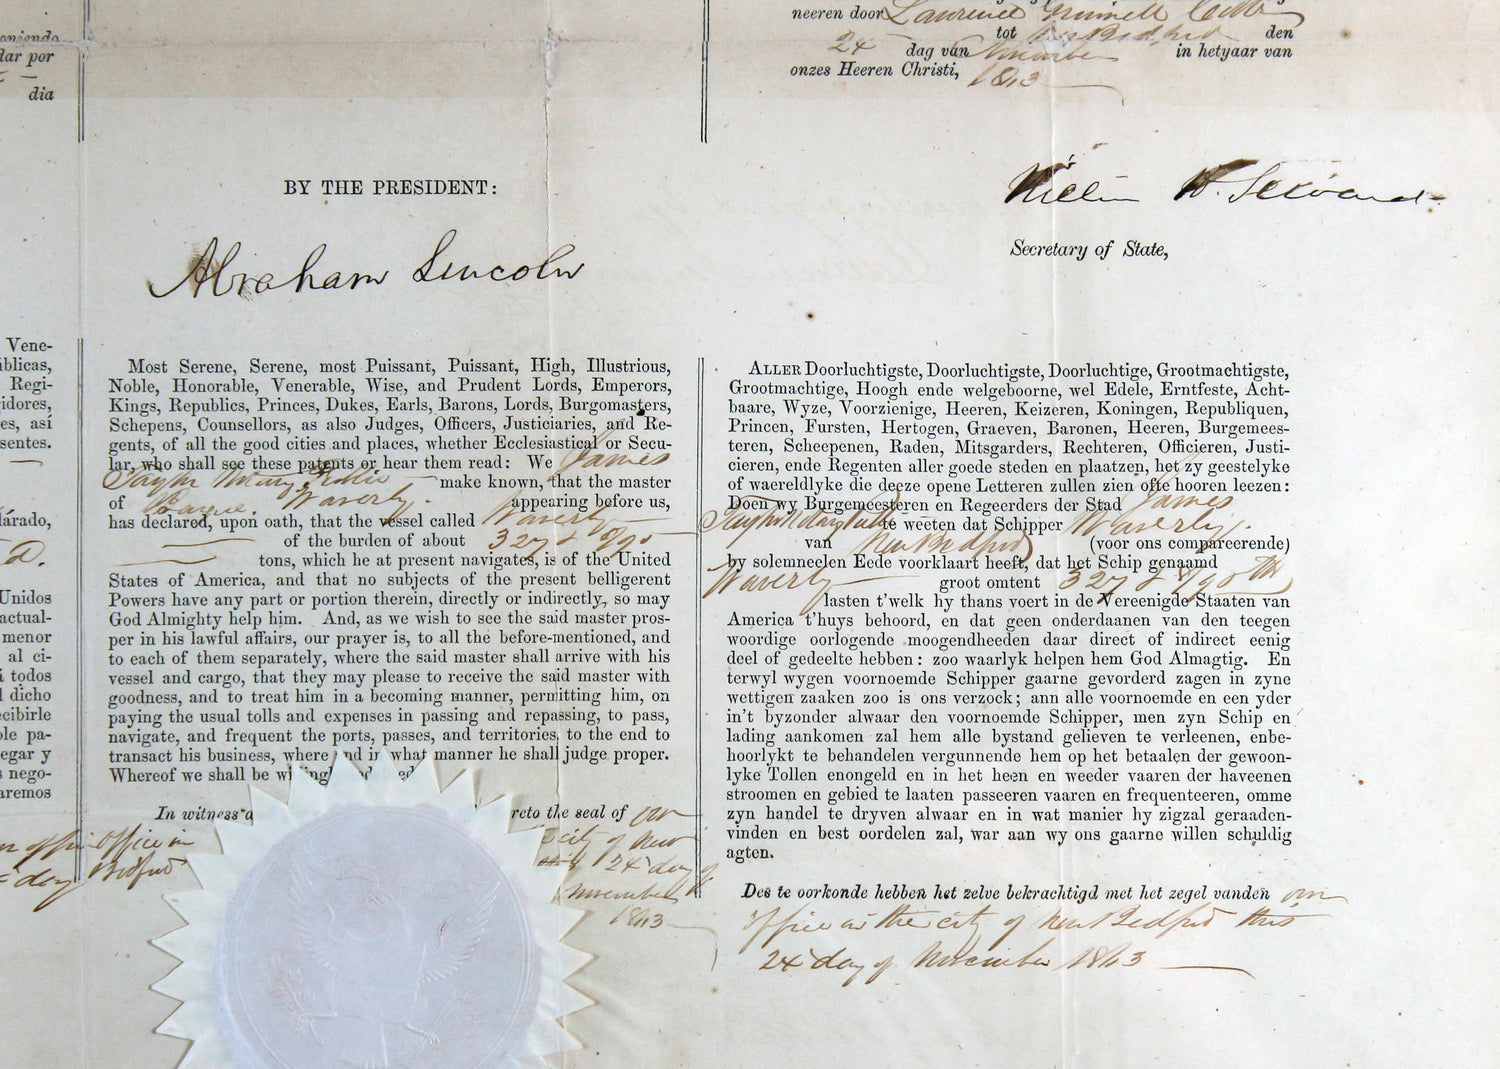 oniendo
dar por
dia
neeren door Lawrence Grinnell Collr
tot New Bedford den
24 dag van November in hetyaar van
onzes Heeren Christi, 1863
BY THE PRESIDENT:
Abraham Lincoln
William H. Seward
Secretary of State,
Vene-
úblicas,
Regi-
idores,
es, así
sentes.
lárado,
D.
Unidos
actual-
menor
al ci-
todos
dicho
cibirle
ble pa-
egar y
nego-
aremos
Most Serene, Serene, most Puissant, Puissant, High, Illustrious,
Noble, Honorable, Venerable, Wise, and Prudent Lords, Emperors,
Kings, Republics, Princes, Dukes, Earls, Barons, Lords, Burgomasters,
Schepens, Counsellors, as also Judges, Officers, Justiciaries, and Re-
gents, of all the good cities and places, whether Ecclesiastical or Secu-
lar, who shall see these patents or hear them read: We James
Taylor make known, that the master
of Barque. Waverly. appearing before us,
has declared, upon oath, that the vessel called Waverly
of the burden of about 327 & 8/95
tons, which he at present navigates, is of the United
States of America, and that no subjects of the present belligerent
Powers have any part or portion therein, directly or indirectly, so may
God Almighty help him. And, as we wish to see the said master pros-
per in his lawful affairs, our prayer is, to all the before-mentioned, and
to each of them separately, where the said master shall arrive with his
vessel and cargo, that they may please to receive the said master with
goodness, and to treat him in a becoming manner, permitting him, on
paying the usual tolls and expenses in passing and repassing, to pass,
navigate, and frequent the ports, passes, and territories, to the end to
transact his business, where and in what manner he shall judge proper.
Whereof we shall be willingly indebted
In witness a reto the seal of our
office in city of New
Bedford this 24 day of
day November
1863
ALLER Doorluchtigste, Doorluchtigste, Doorluchtige, Grootmachtigste,
Grootmachtige, Hoogh ende welgeboorne, wel Edele, Erntfeste, Acht-
baare, Wyze, Voorzienige, Heeren, Keizeren, Koningen, Republiquen,
Princen, Fursten, Hertogen, Graeven, Baronen, Heeren, Burgemees-
teren, Scheepenen, Raden, Mitsgarders, Rechteren, Officieren, Justi-
cieren, ende Regenten aller goede steden en plaatzen, het zy geestelyke
of waereldlyke die deeze opene Letteren zullen zien ofte hooren leezen:
Doen wy Burgemeesteren en Regeerders der Stad James
Taylor te weeten dat Schipper Waverly.
van New Bedford (voor ons compareerende)
by solemneelen Eede voorklaart heeft, dat het Schip genaamd
Waverly groot omtent 327 & 8/95th
lasten t'welk hy thans voert in de Vereenigde Staaten van
America t'huys behoord, en dat geen onderdaanen van den teegen
woordige oorlogende moogendheeden daar direct of indirect eenig
deel of gedeelte hebben: zoo waarlyk helpen hem God Almagtig. En
terwyl wygen voornoemde Schipper gaarne gevorderd zagen in zyne
wettigen zaaken zoo is ons verzock; ann alle voornoemde en een yder
in't byzonder alwaar den voornoemde Schipper, men zyn Schip en
lading aankomen zal hem alle bystand gelieven te verleenen, enbe-
hoorlykt te behandelen vergunnende hem op het betaalen der gewoon-
lyke Tollen enongeld en in het heen en weeder vaaren der haveenen
stroomen en gebied te laaten passeeren vaaren en frequenteeren, omme
zyn handel te dryven alwaar en in wat manier hy zigzal geraaden-
vinden en best oordelen zal, war aan wy ons gaarne willen schuldig
agten.
Des te oorkonde hebben het zelve bekrachtigd met het zegel vanden our
office in the city of New Bedford this
24 day of November 1863